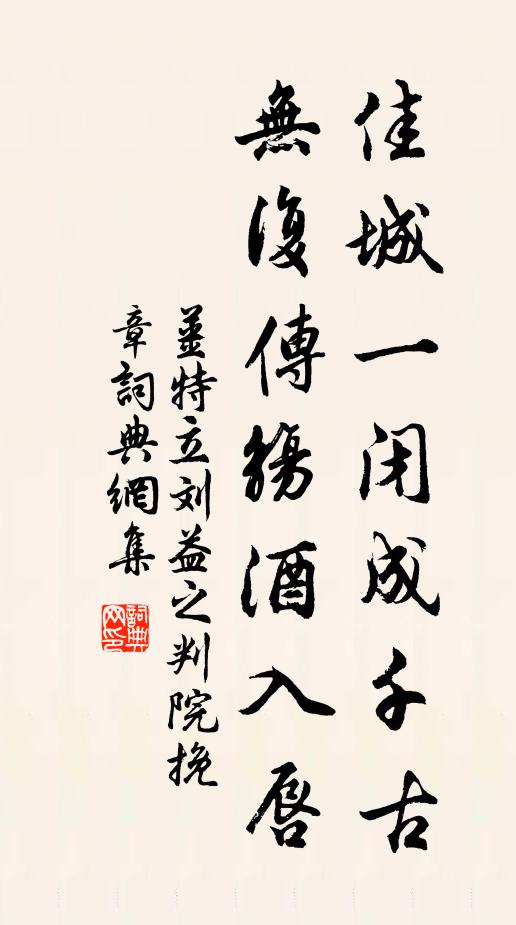 佳城一闭成千古
無復傳觴酒入唇
姜特立刘益之判院挽
章詞典網集
詞典網印